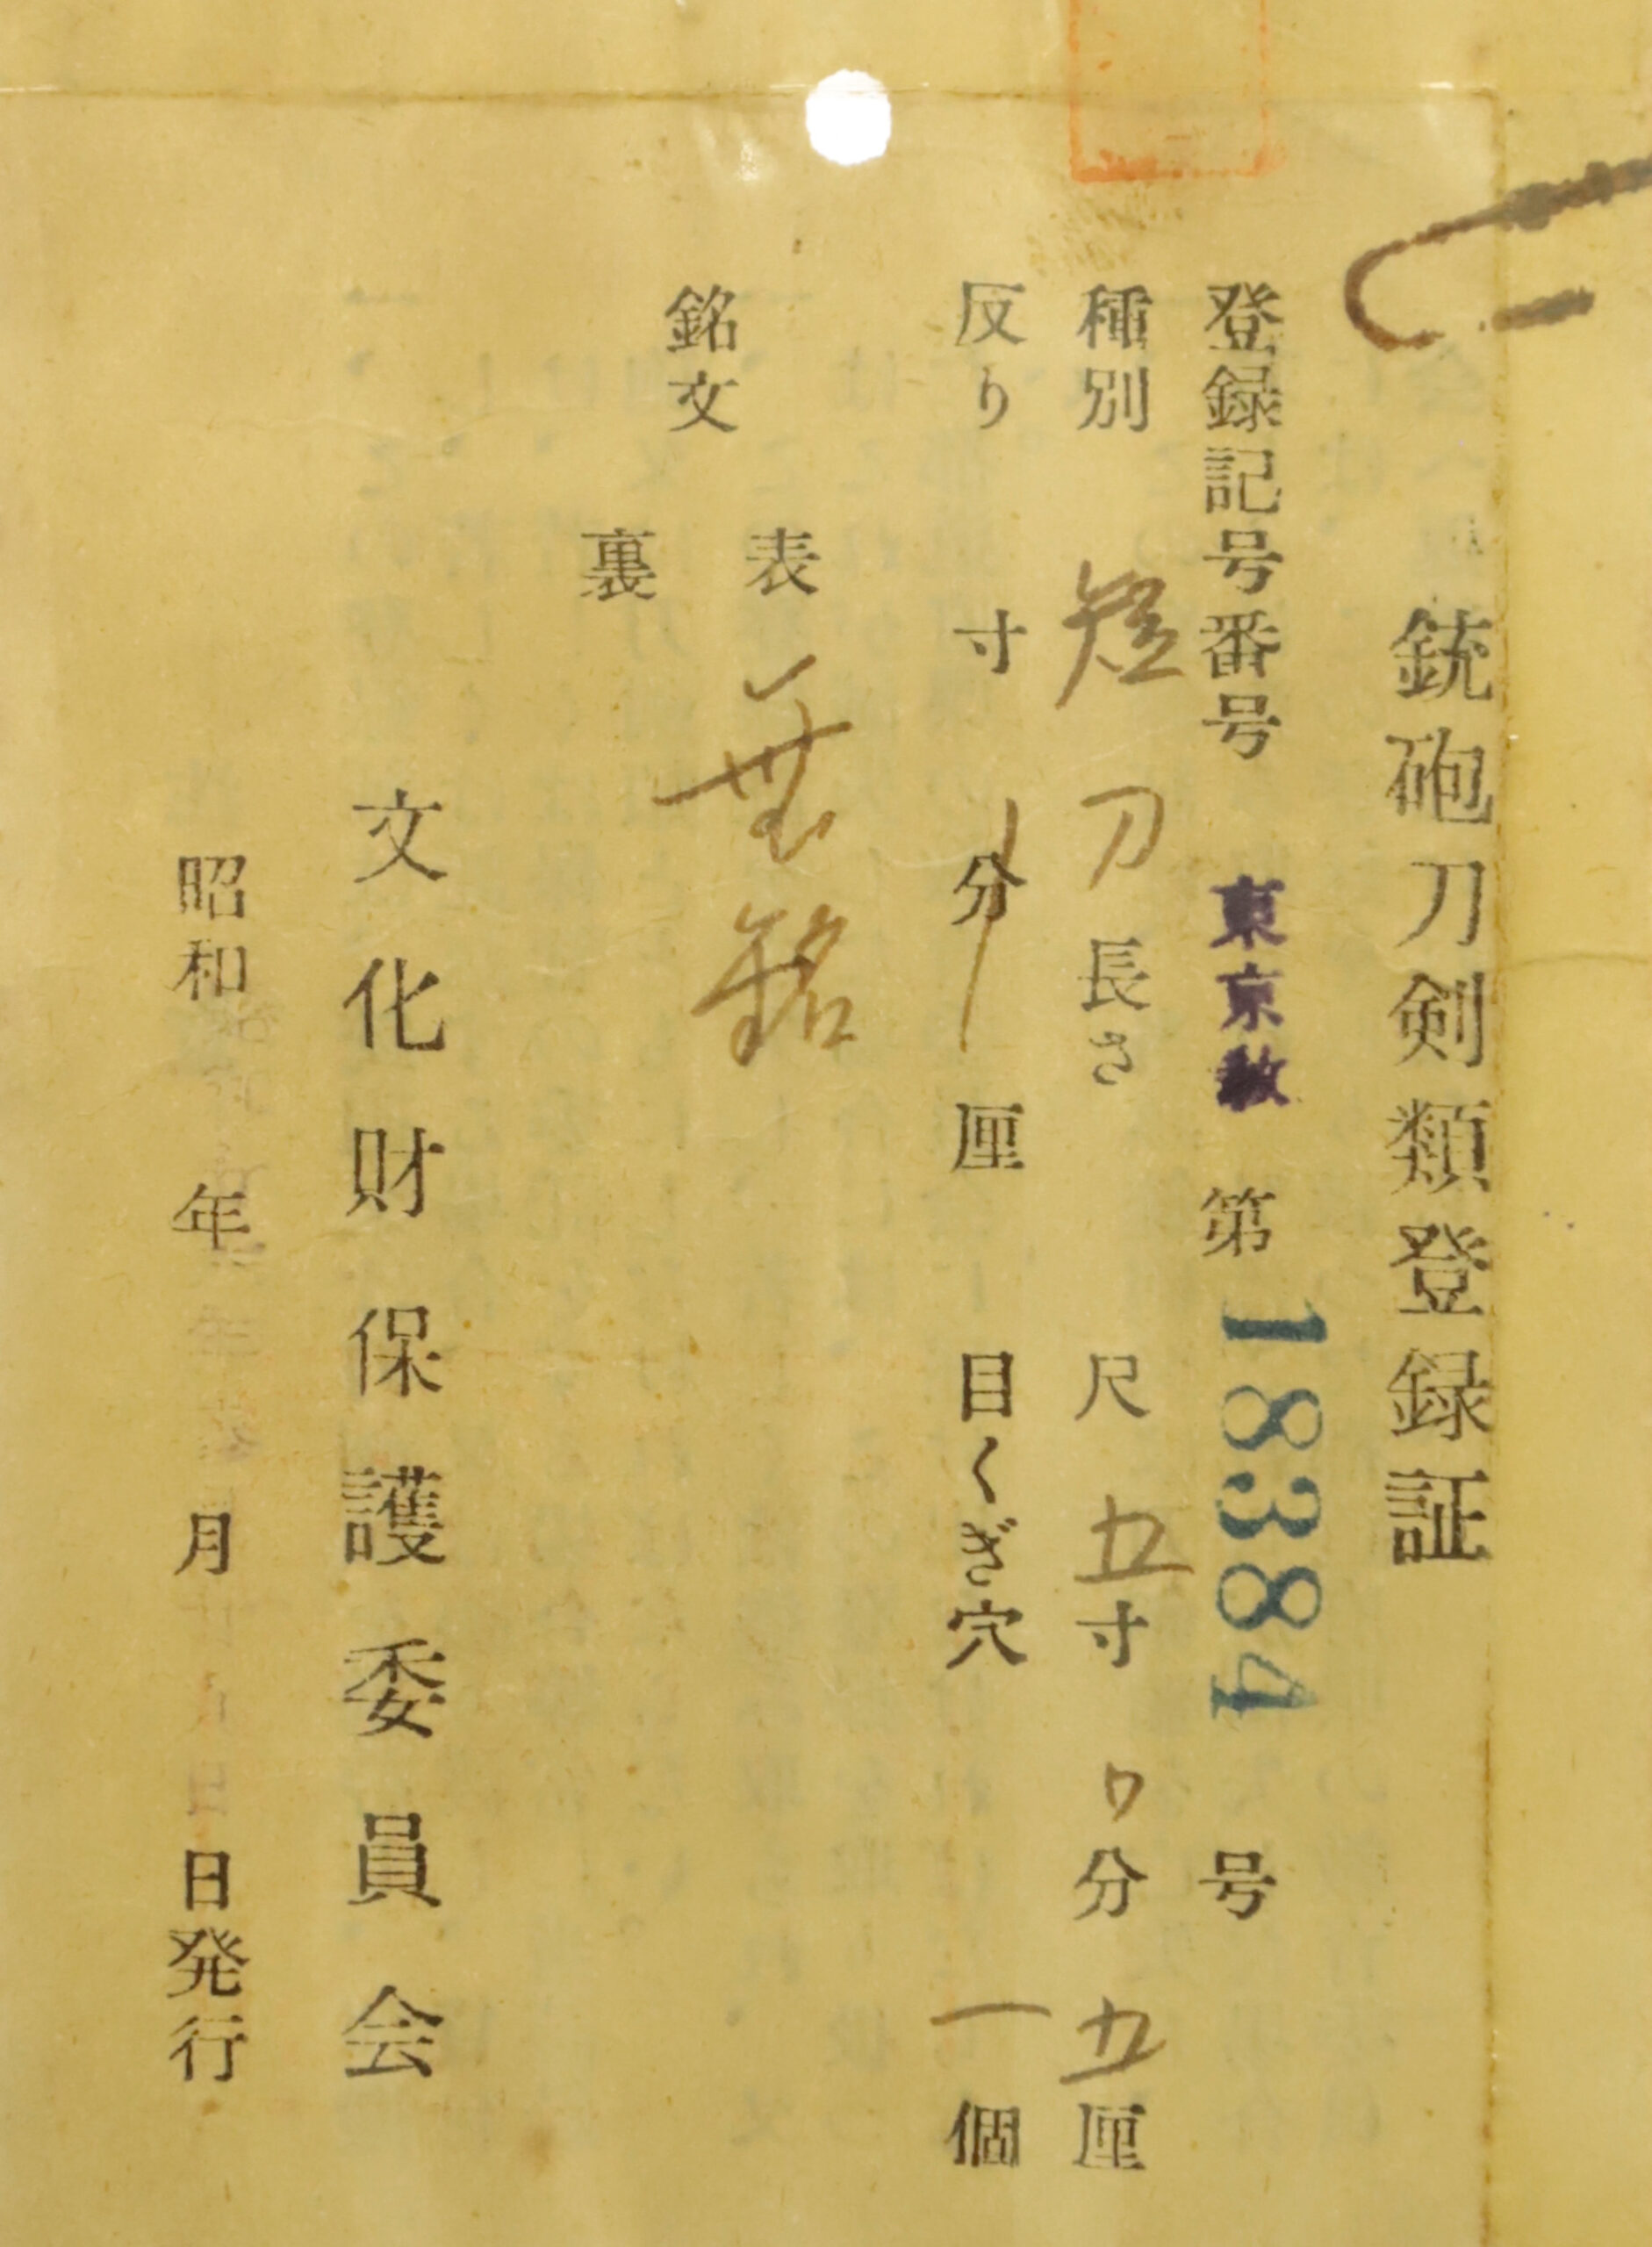 銃砲刀剣類登録証
登録記号番号 東京教 第 18384 号
種別 短刀 長さ 尺 五寸 分 五厘
反り 寸 分 厘 目くぎ穴 一個
銘文
表 無銘
裏
文化財保護委員会
昭和 年 月 日発行